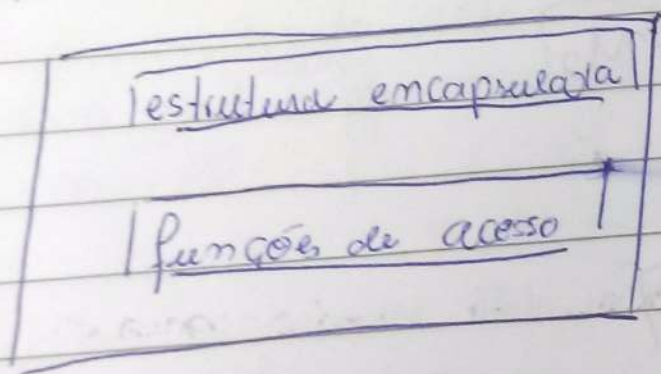 estrutura encapsulada
funções de acesso